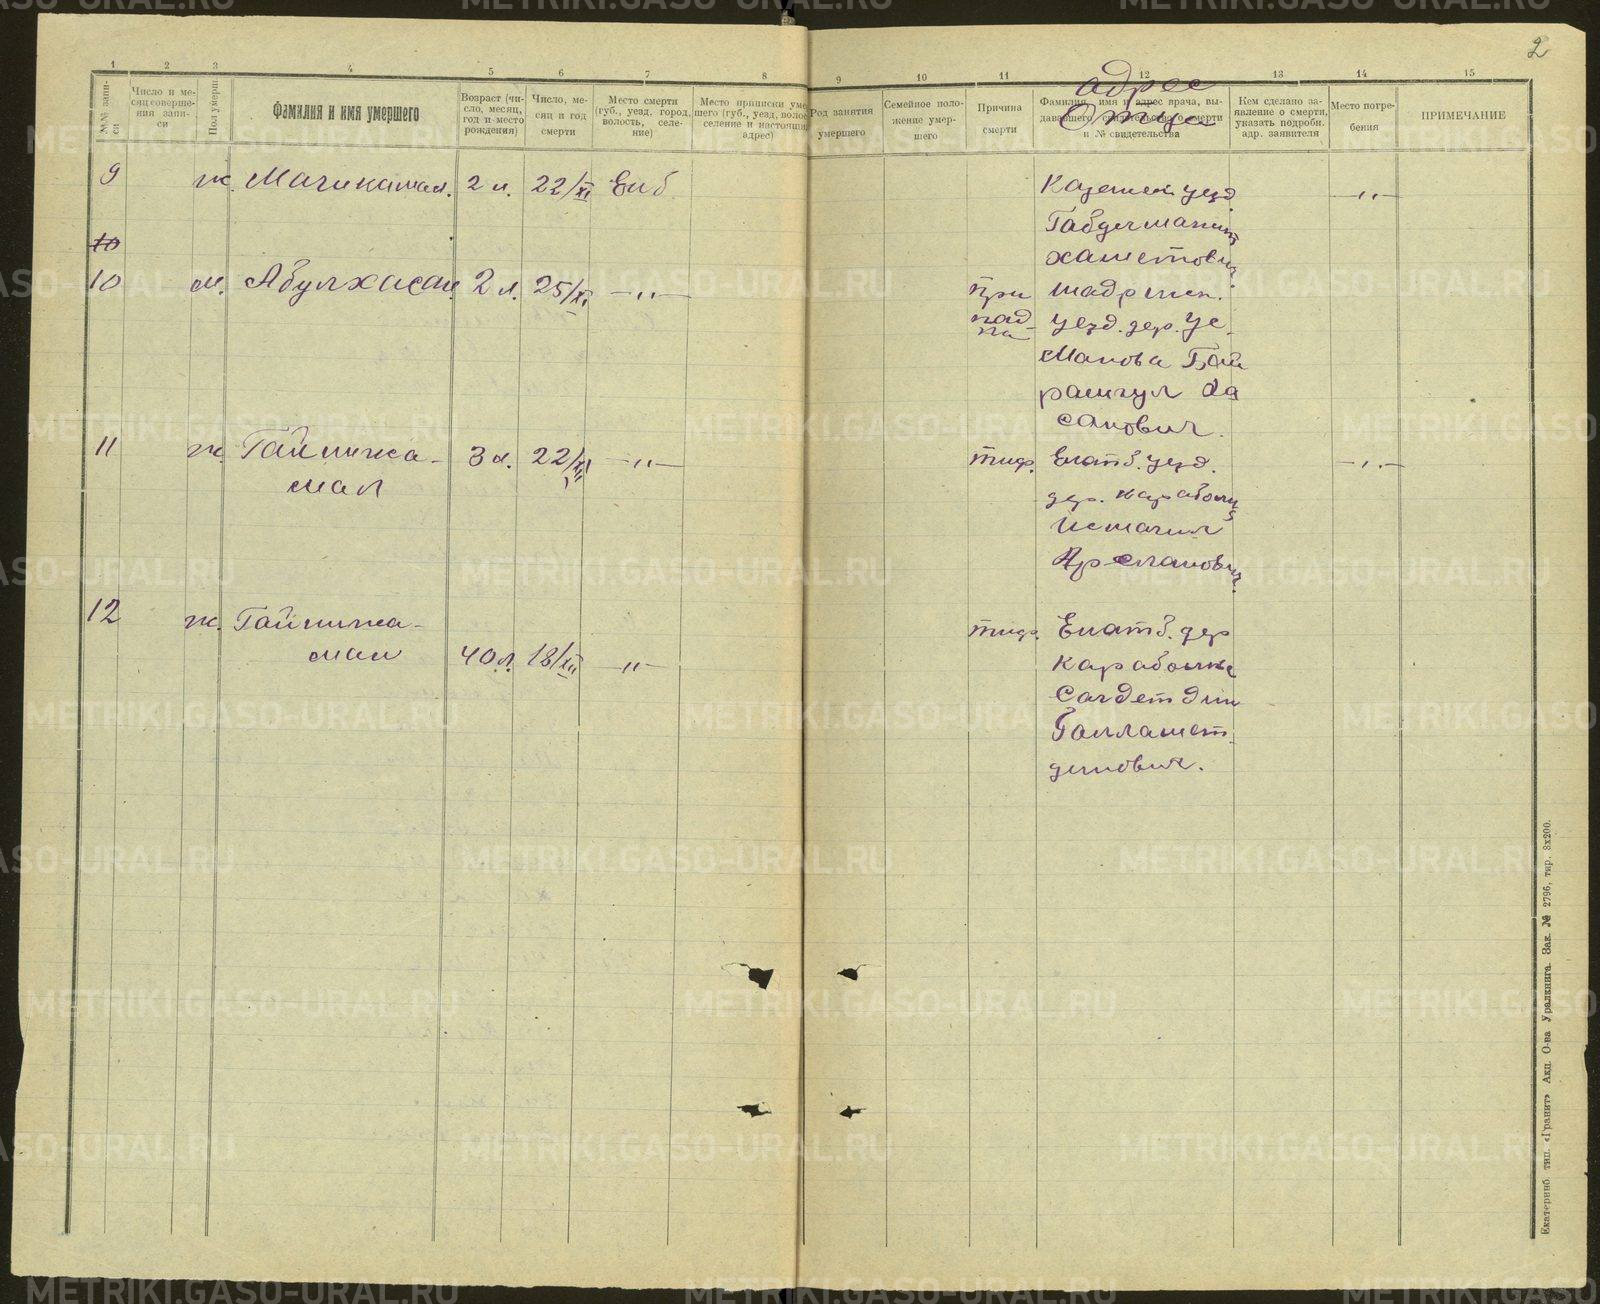 2
1 2 3 4 5 6 7 8 9 10 11 12 13 14 15
№№ записи
Число и месяц совершения записи
Пол умерш.
Фамилия и имя умершего
Возраст (число, месяц, год и место рождения)
Число, месяц и год смерти
Место смерти (губ., уезд, город, волость, селение)
Место приписки умершего (губ., уезд, волос. селение и настоящи адрес)
Род занятия умершего
Семейное положение умершего
Причина смерти
Фамилия, имя и адрес врача, выдававшего свидетельство о смерти и № свидетельства
адрес
Отца
Кем сделано заявление о смерти, указать подробн. адр. заявителя
Место погребения
ПРИМЕЧАНИЕ
9 ж. 2 л. 22/XI Екб -„-
уезд
10
10 м. Абулхасан 2 л. 25/XI -„-
при
пад-
ка
Шадринск.
уезд. дер. Ус-
манова Бай
рамгул Ха
санович.
11 ж. Гайникa-
мал
3 л. 22/XII -„- тиф. -„-
Екатб. уезд.
дер. Караболка
Исмагил
Арсланович
12 ж. Гайника-
мал
40 л. 18/XII -„- тиф.
Екатб. дер
Караболка
динович.
Екатеринб. тип. «Гранит» Акц. О-ва Уралкнига. Зак. № 2796, тир. 8х200.
METRIKI.GASO-URAL.RU